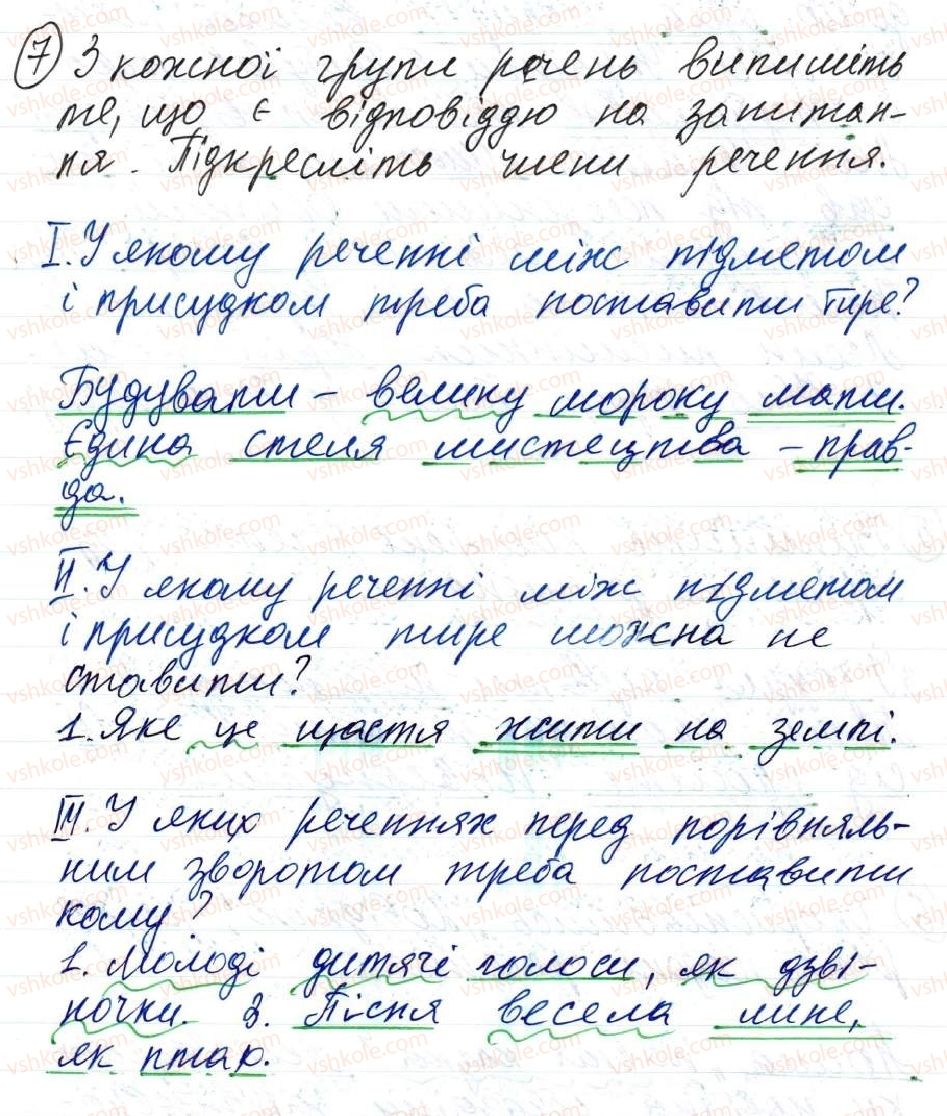 7 З кожної групи речень випишіть
те, що є відповіддю на запитан-
ня. Підкресліть члени речення.
I. У якому реченні між підметом
і присудком треба поставити тире?
Будувати – велику мороку мати.
Єдина стеля мистецтва – прав-
да.
II. У якому реченні між підметом
і присудком тире можна не
ставити?
1. Яке це щастя жити на землі.
III. У яких реченнях перед порівняль-
ним зворотом треба поставити
кому?
1. Молоді дитячі голоси, як дзві-
ночки. 3. Пісня весела лине,
як птах.